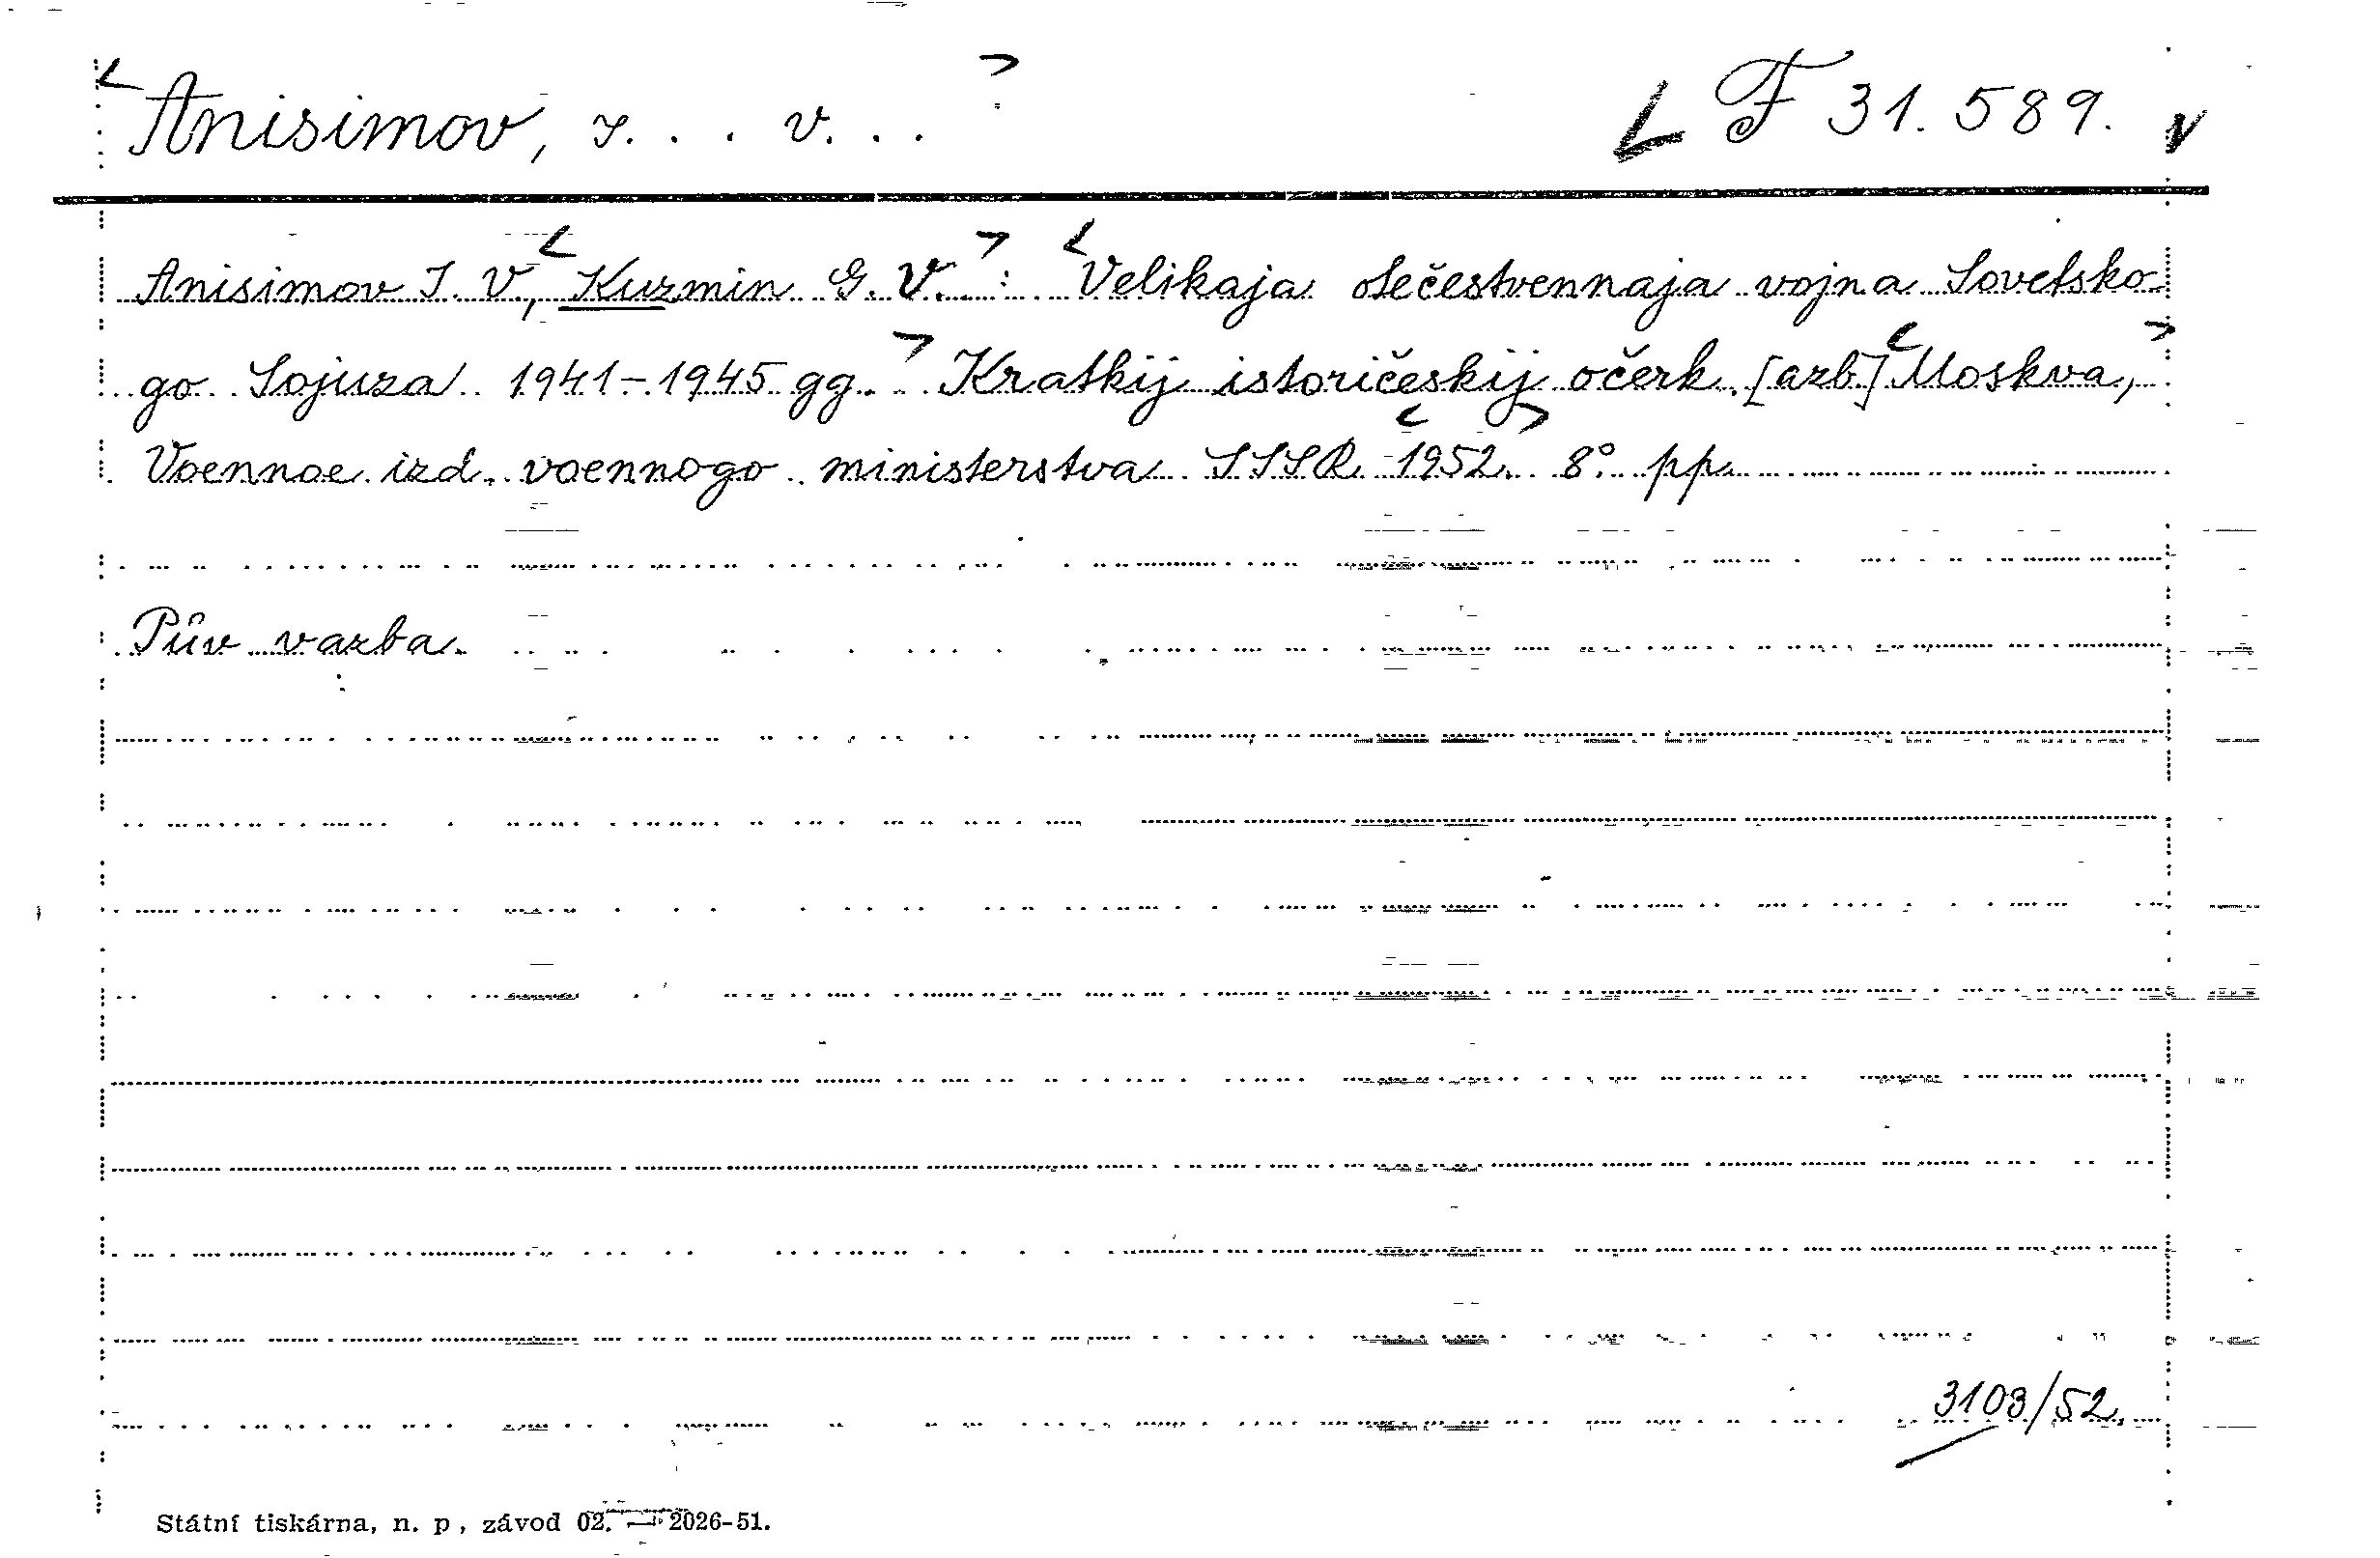 Anisimov, I. . . V. . .
F 31.589.
Anisimov I. V., Kuzmin G. V.: Velikaja otečestvennaja vojna Sovetsko-
go Sojuza 1941-1945 gg. Kratkij istoričeskij očerk. [azb] Moskva,
Voennoe izd. voennogo ministerstva SSSR 1952. 8° pp.
Pův vazba.
3103/52.
Státní tiskárna, n. p., závod 02. — 2026-51.